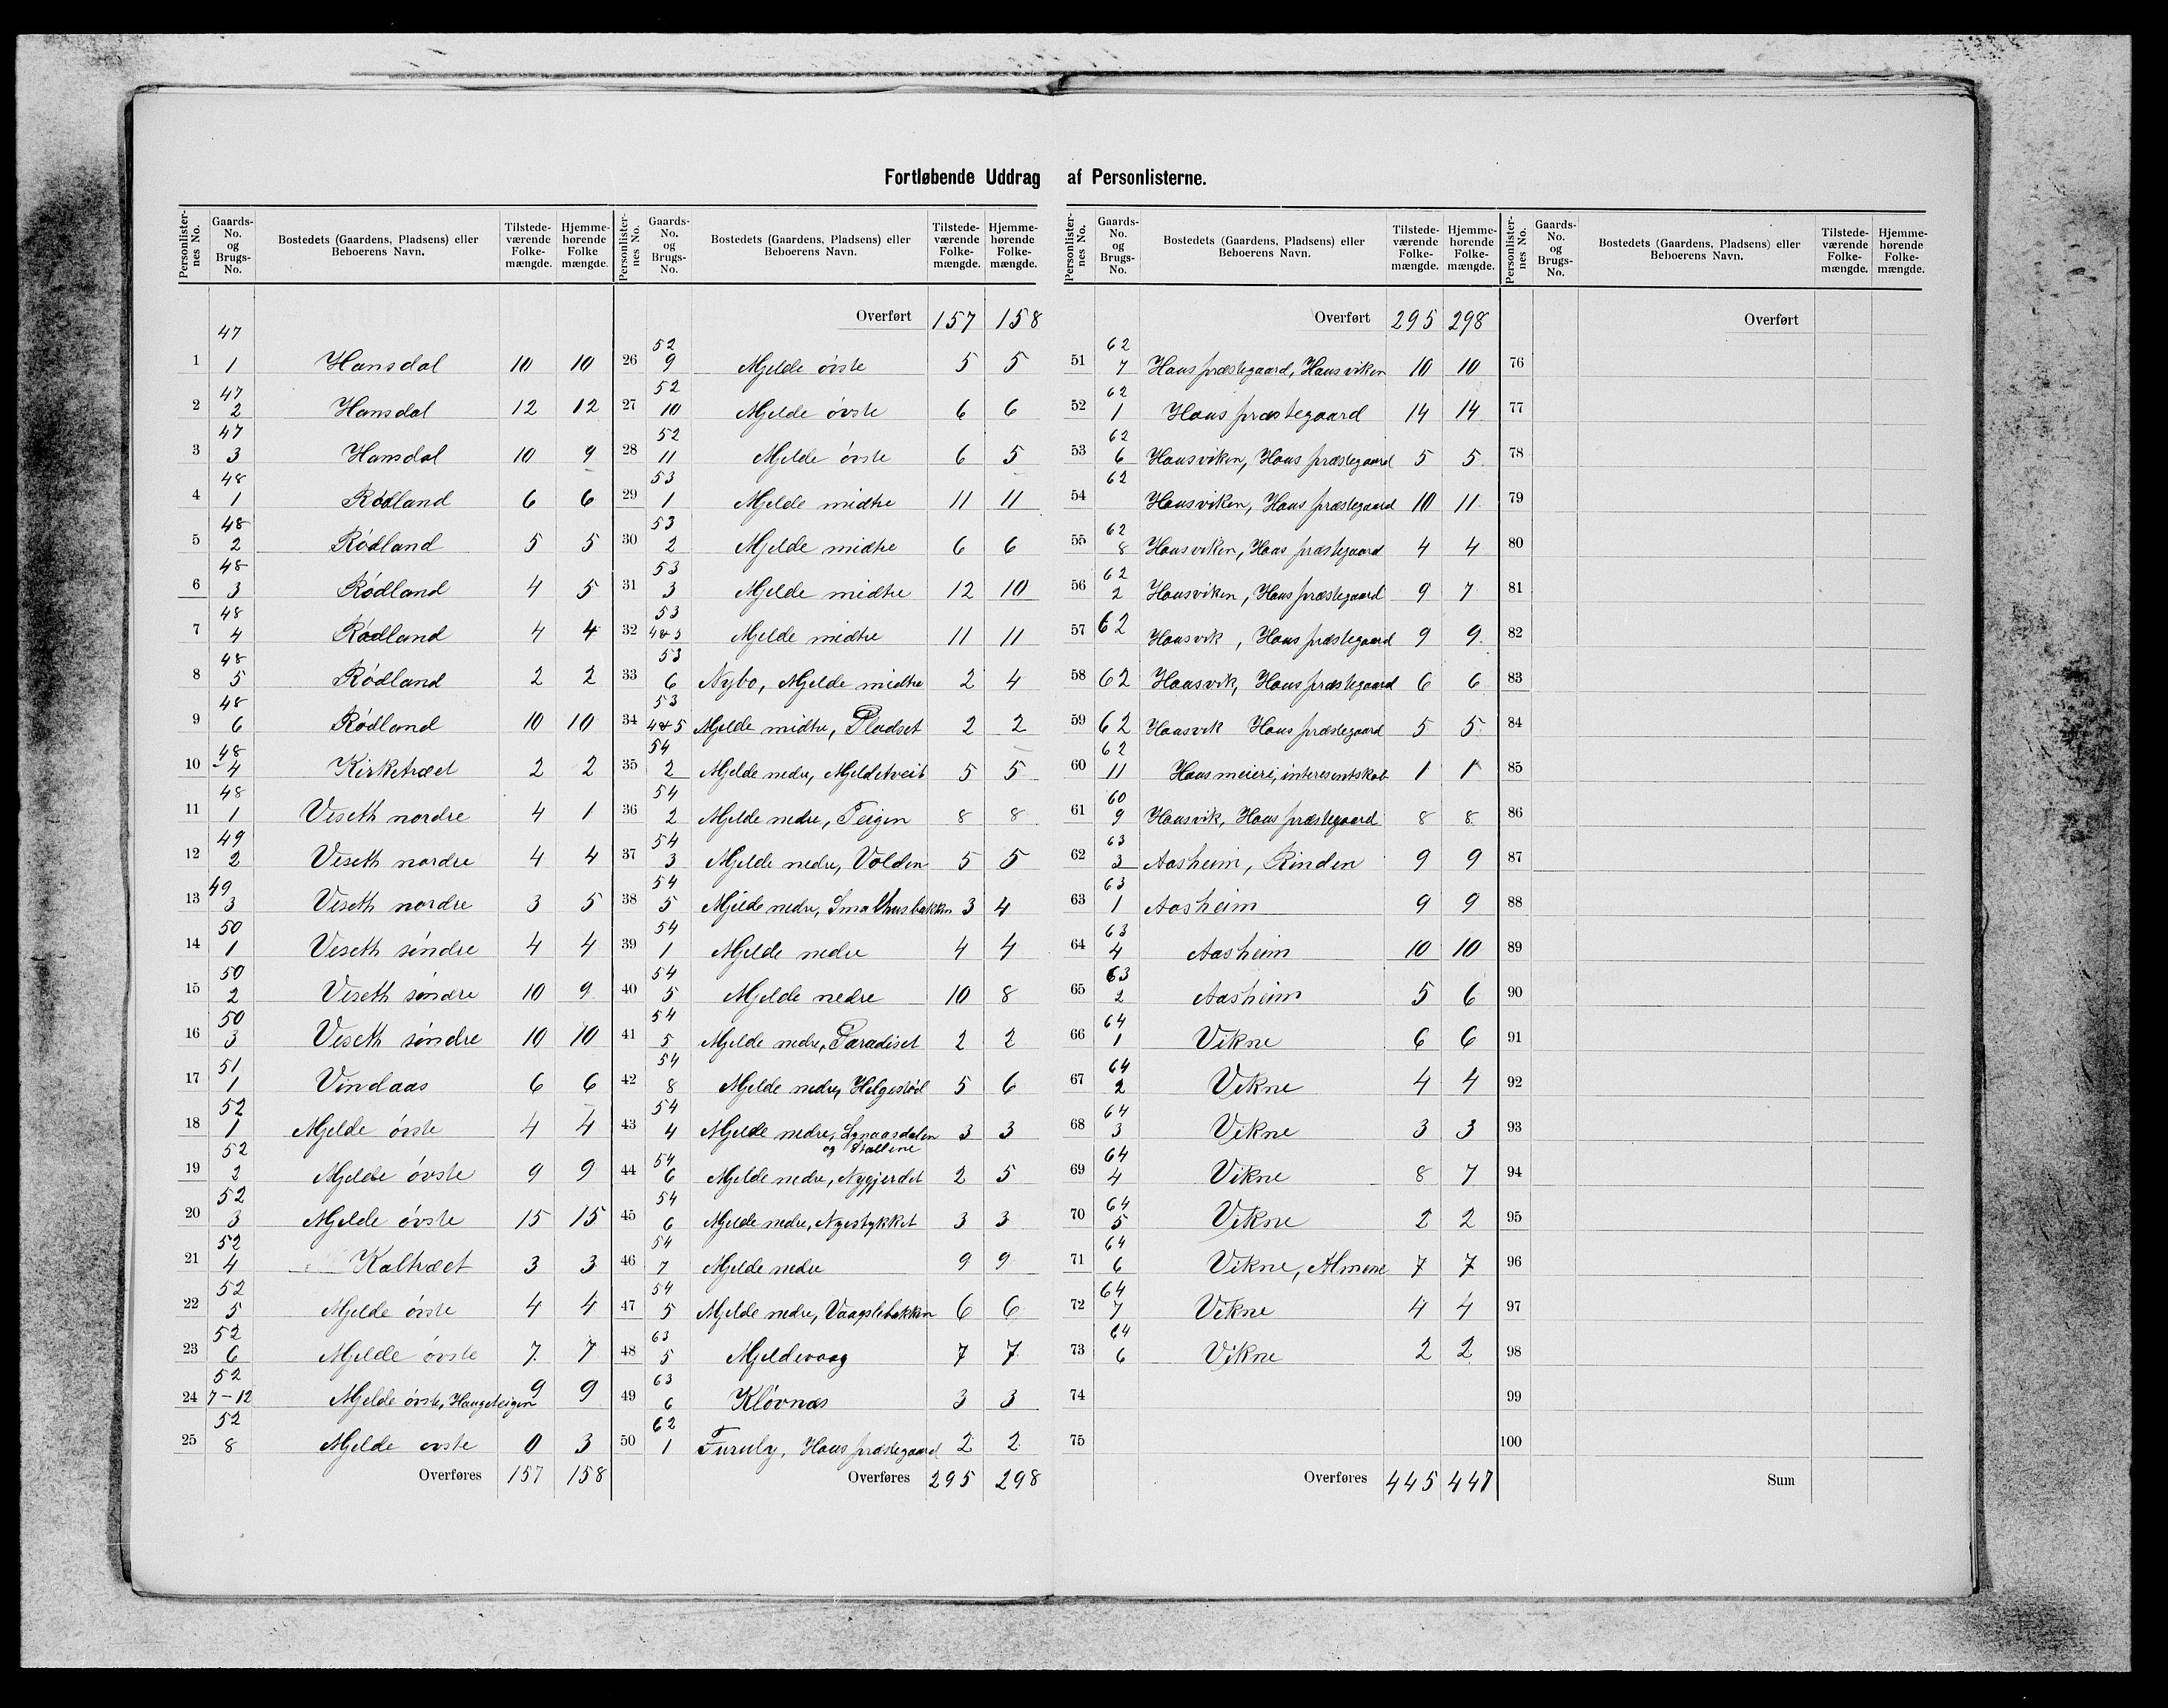 Fortløbende Uddrag af Personlisterne.
Personlister-nes No. | Gaards-No. og Brugs-No. | Bostedets (Gaardens, Pladsens) eller Beboerens Navn. | Tilstede-værende Folke-mængde. | Hjemme-hørende Folke mængde.
1 | 47 1 | Hansdal | 10 | 10
2 | 47 2 | Hansdal | 12 | 12
3 | 47 3 | Hansdal | 10 | 9
4 | 48 1 | Rödland | 6 | 6
5 | 48 2 | Rödland | 5 | 5
6 | 48 3 | Rödland | 4 | 5
7 | 48 4 | Rödland | 4 | 4
8 | 48 5 | Rödland | 2 | 2
9 | 48 6 | Rödland | 10 | 10
10 | 48 4 | Kirketræet | 2 | 2
11 | 48 1 | Viseth nordre | 4 | 1
12 | 49 2 | Viseth nordre | 4 | 4
13 | 49 3 | Viseth nordre | 3 | 5
14 | 50 1 | Viseth söndre | 4 | 4
15 | 50 2 | Viseth söndre | 10 | 9
16 | 50 3 | Viseth söndre | 10 | 10
17 | 51 1 | Vindaas | 6 | 6
18 | 52 1 | Mjelde övste | 4 | 4
19 | 52 2 | Mjelde övste | 9 | 9
20 | 52 3 | Mjelde övste | 15 | 15
21 | 52 4 | Kaltræet | 3 | 3
22 | 52 5 | Mjelde övste | 4 | 4
23 | 52 6 | Mjelde övste | 7 | 7
24 | 52 7-12 | Mjelde övste, Haugeteigen | 9 | 9
25 | 52 8 | Mjelde ovste | 0 | 3
Overføres | 157 | 158
Personlister-nes No. | Gaards-No. og Brugs-No. | Bostedets (Gaardens, Pladsens) eller Beboerens Navn. | Tilstede-værende Folke-mængde. | Hjemme-hørende Folke-mængde.
Overført | 157 | 158
26 | 52 9 | Mjelde övste | 5 | 5
27 | 52 10 | Mjelde övste | 6 | 6
28 | 52 11 | Mjelde övste | 6 | 5
29 | 53 1 | Mjelde midtre | 11 | 11
30 | 53 2 | Mjelde midtre | 6 | 6
31 | 53 3 | Mjelde midtre | 12 | 10
32 | 53 4&5 | Mjelde midtre | 11 | 11
33 | 53 6 | Nybo, Mjelde midtre | 2 | 4
34 | 53 4&5 | Mjelde midtre, Pladset | 2 | 2
35 | 54 2 | Mjelde nedre, Mjeldetveit | 5 | 5
36 | 54 2 | Mjelde nedre, Teigen | 8 | 8
37 | 54 3 | Mjelde nedre, Volden | 5 | 5
38 | 54 5 | Mjelde nedre, Smalhusbakken | 3 | 4
39 | 54 1 | Mjelde nedre | 4 | 4
40 | 54 5 | Mjelde nedre | 10 | 8
41 | 54 5 | Mjelde nedre, Paradiset | 2 | 2
42 | 54 8 | Mjelde nedre, Helgestöl | 5 | 6
43 | 54 4 | Mjelde nedre, og | 3 | 3
44 | 54 6 | Mjelde nedre, Nygjerdet | 2 | 5
45 | 54 6 | Mjelde nedre, Nyestykket | 3 | 3
46 | 54 7 | Mjelde nedre | 9 | 9
47 | 54 5 | Mjelde nedre, Vaagslebakken | 6 | 6
48 | 63 5 | Mjeldevaag | 7 | 7
49 | 63 6 | Klövnæs | 3 | 3
50 | 62 1 | Furuly, Haus præstegaard | 2 | 2
Overføres | 295 | 298
Personlister-nes No. | Gaards-No. og Brugs-No. | Bostedets (Gaardens, Pladsens) eller Beboerens Navn. | Tilstede-værende Folke-mængde. | Hjemme-hørende Folke-mængde.
Overført | 295 | 298
51 | 62 7 | Haus præstegaard, Hausviken | 10 | 10
52 | 62 1 | Haus præstegaard | 14 | 14
53 | 62 6 | Hausviken, Haus præstegaard | 5 | 5
54 | 62 | Hausviken, Haus præstegaard | 10 | 11
55 | 62 8 | Hausviken, Haus præstegaard | 4 | 4
56 | 62 2 | Hausviken, Haus præstegaard | 9 | 7
57 | 62 | Hausvik, Haus præstegaard | 9 | 9
58 | 62 | Hausvik, Haus præstegaard | 6 | 6
59 | 62 | Hausvik Haus præstegaard | 5 | 5
60 | 62 11 | Haus meieri, interesentskab | 1 | 1
61 | 60 9 | Hausvik, Haus præstegaard | 8 | 8
62 | 63 3 | Aasheim, Rinden | 9 | 9
63 | 63 1 | Aasheim | 9 | 9
64 | 63 4 | Aasheim | 10 | 10
65 | 63 2 | Aasheim | 5 | 6
66 | 64 1 | Vikne | 6 | 6
67 | 64 2 | Vikne | 4 | 4
68 | 64 3 | Vikne | 3 | 3
69 | 64 4 | Vikne | 8 | 7
70 | 64 5 | Vikne | 2 | 2
71 | 64 6 | Vikne, Almene | 7 | 7
72 | 64 7 | Vikne | 4 | 4
73 | 64 6 | Vikne | 2 | 2
74
75
Overføres | 445 | 447
Personlister-nes No. | Gaards-No. og Brugs-No. | Bostedets (Gaardens, Pladsens) eller Beboerens Navn. | Tilstede-værende Folke-mængde. | Hjemme-hørende Folke-mængde.
Overført
76
77
78
79
80
81
82
83
84
85
86
87
88
89
90
91
92
93
94
95
96
97
98
99
100
Sum